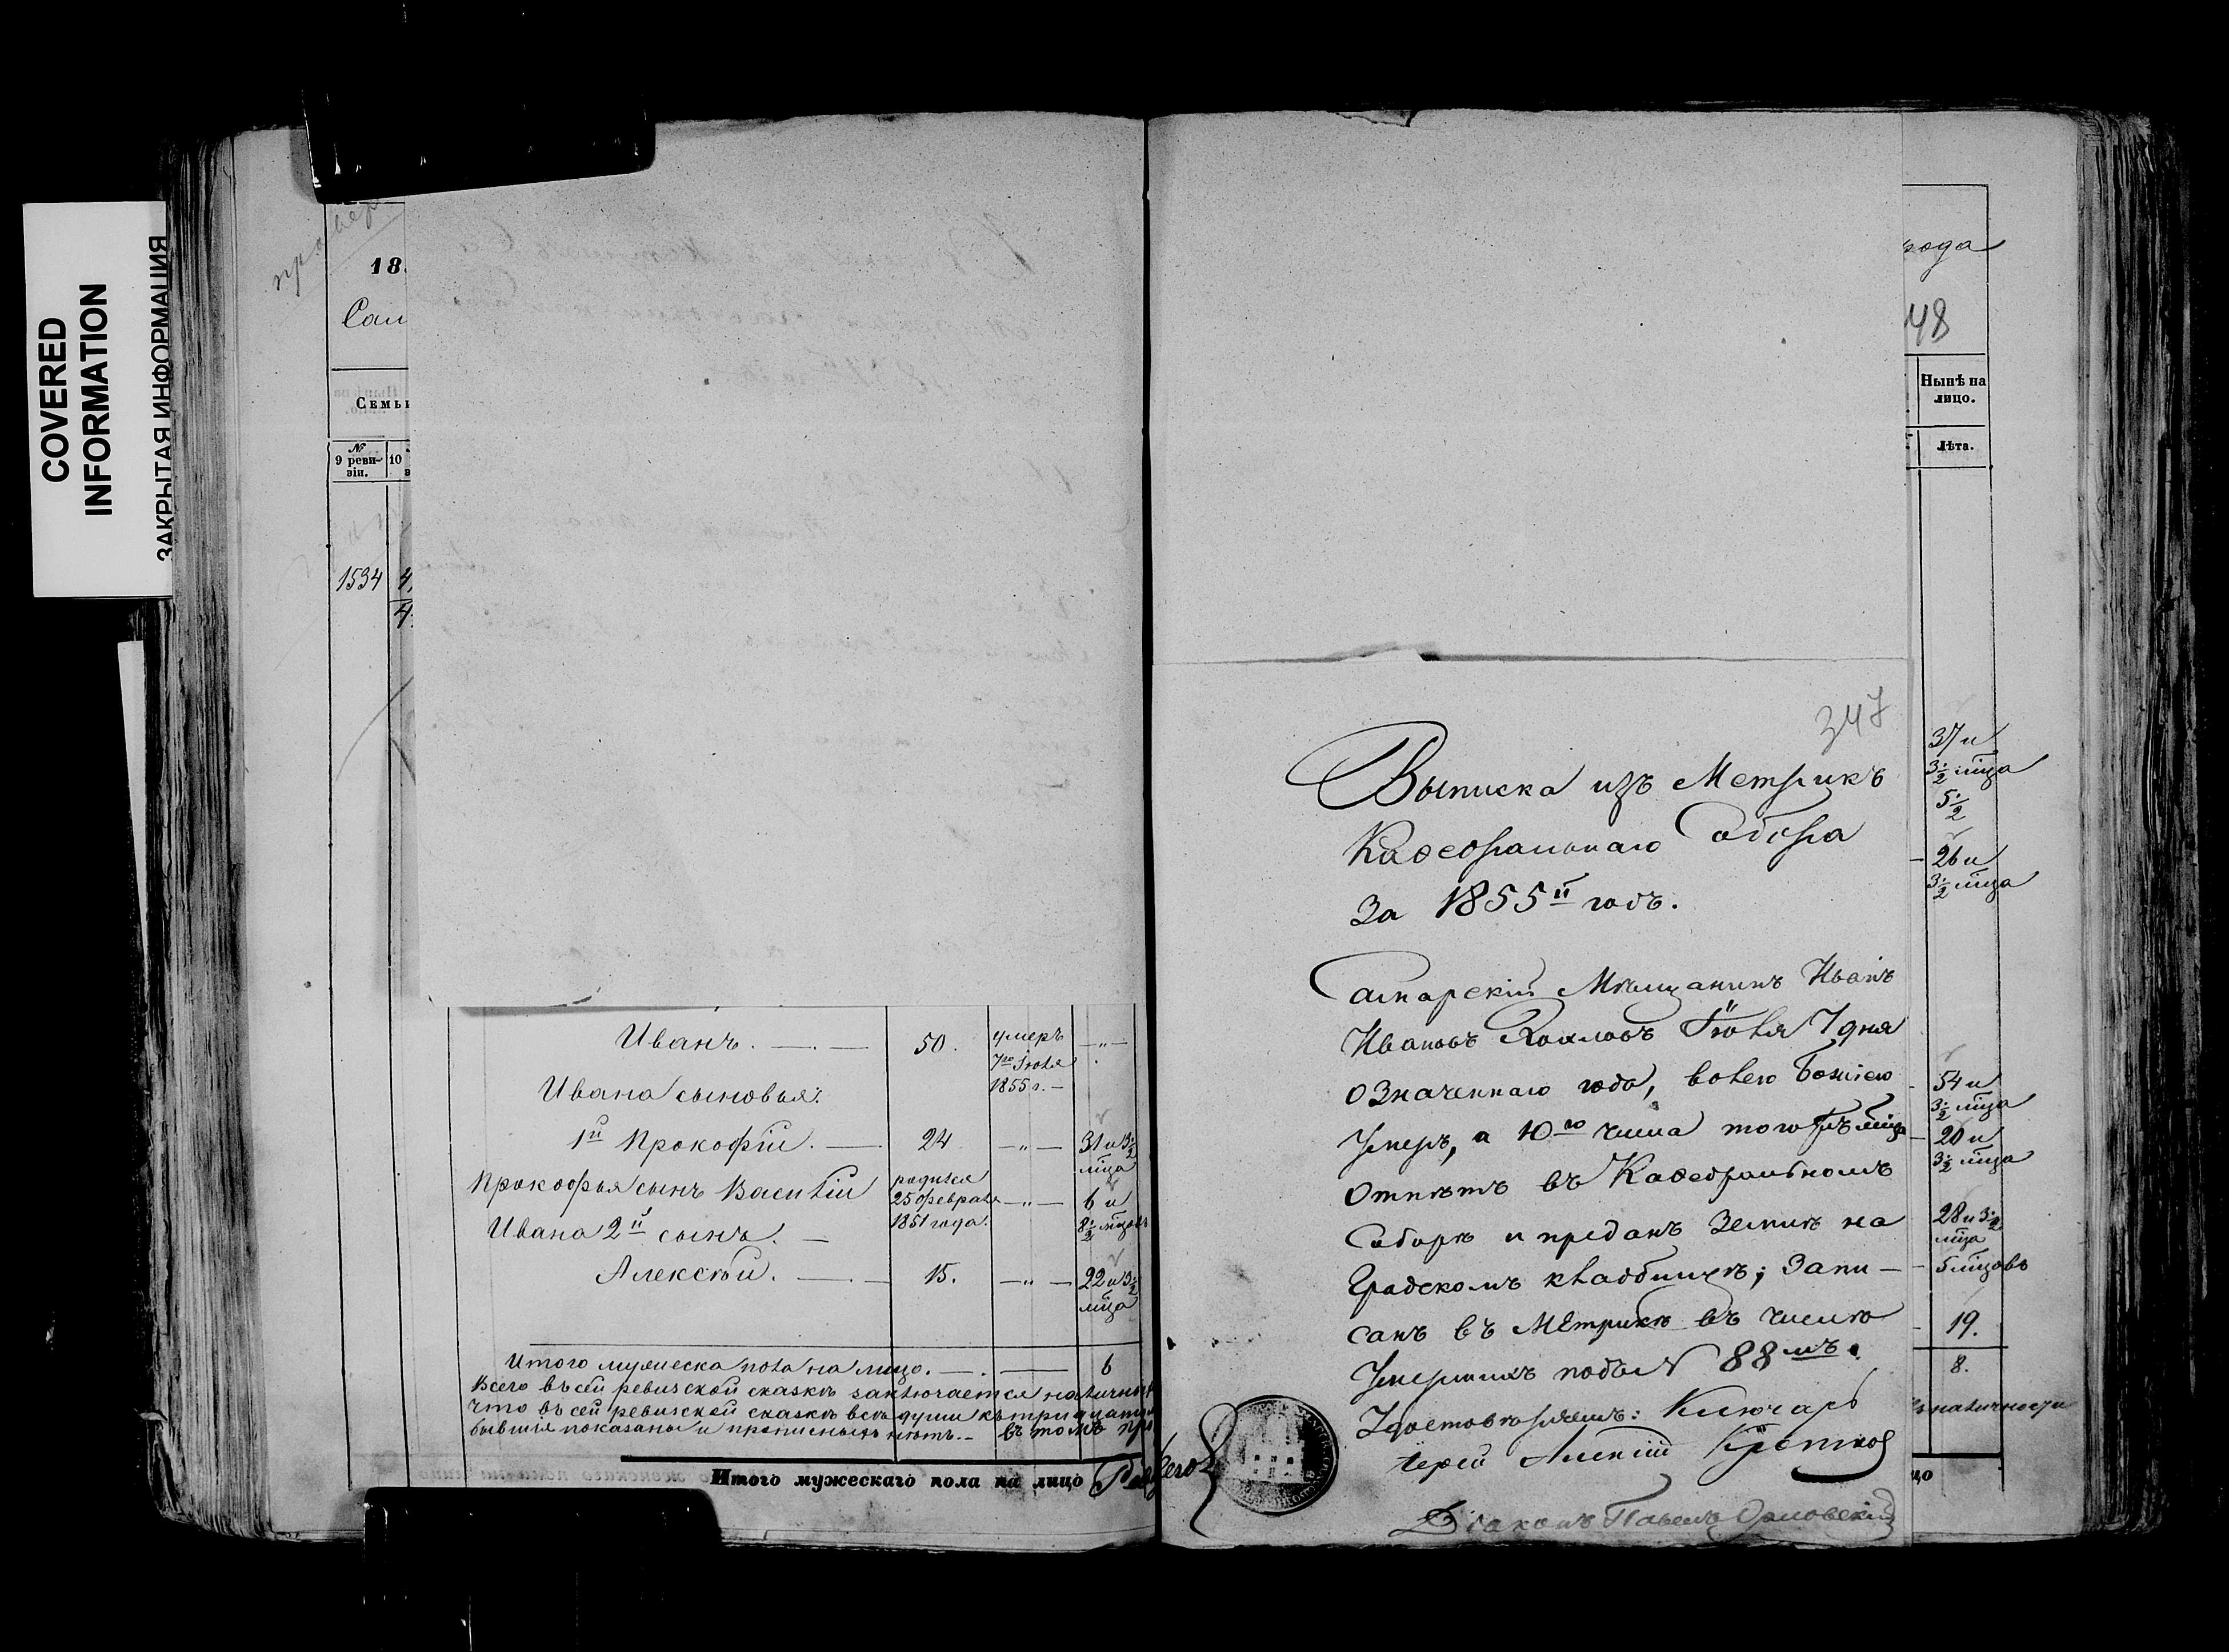 COVERED
INFORMATION
ЗАКРЫТАЯ ИНФОРМАЦИЯ
18
Сам
Семьи
№
9 реви-
зіи.
10
1534
Иванъ. 50. умеръ
7го Іюля
1855 г.
Ивана сыновья:
1й Прокофій. 24 —„— 31 и 3½
мѣца
Прокофья сынъ Василій родился
25 февраля
1851 года. —„— 6 и
8½ мѣцовъ
Ивана 2й сынъ.
Алексѣй. 15. —„— 22 и 3½
мѣца
Итого мужеска пола на лицо. 6
Всего въ сей ревизской сказкѣ заключается наличных
Что въ сей ревизской сказкѣ всѣ души
бывшія показаны и прописныхъ нѣтъ. въ томъ
Итого мужескаго пола на лицо
347
Выписка изъ Метрикъ
Кафедральнаго Собора
За 1855й годъ.
Самарскій Мѣщанинъ Иванъ
Ивановъ Іюля 7 дня
означеннаго года, волею Божіею
Умеръ, а 10го числа того жъ мѣца
Отпѣтъ въ Кафедральномъ
Соборѣ и преданъ Землѣ на
Градскомъ кладбищѣ; Запи-
санъ въ Метрикѣ въ числѣ
Умершихъ подъ № 88мъ.
Удостовѣряемъ: Ключарь
Іерей Алексій
Діаконъ Павелъ Орловскій
года
48
Нынѣ на
лицо.
Лѣта.
37 и
3½ мѣца
5½
26 и
3½ мѣца
54 и
3½ мѣца
20 и
3½ мѣца
28 и 3½
мѣца
5 мѣцовъ
19.
8.
наличности
цо